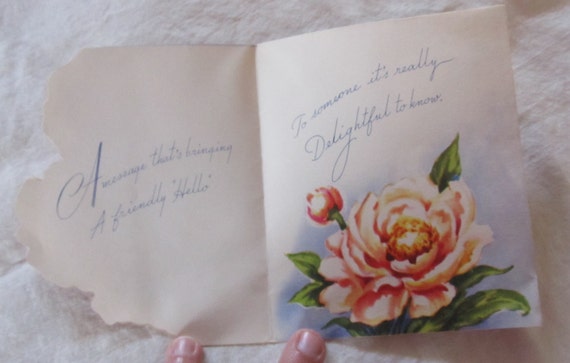 A message that's bringing
A friendly "Hello"
To someone it's really
Delightful to know.